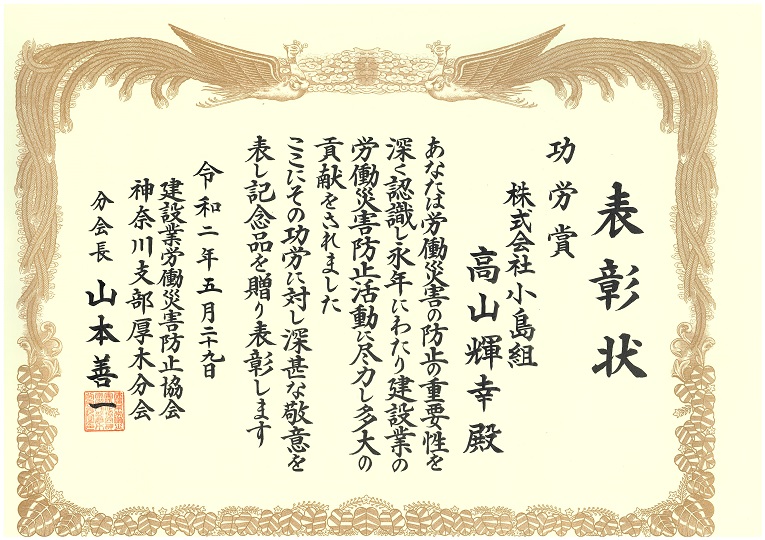 表彰状
功労賞
株式会社小島組
高山輝幸殿
あなたは労働災害の防止の重要性を
深く認識し永年にわたり建設業の
労働災害防止活動に尽力し多大の
貢献をされました
ここにその功労に対し深甚な敬意を
表し記念品を贈り表彰します
令和二年五月二十九日
建設業労働災害防止協会
神奈川支部厚木分会
分会長 山本善一